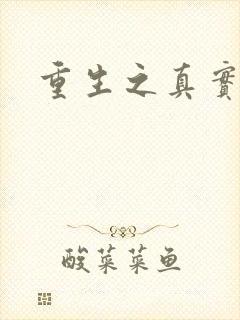 重生之真實
酸菜菜鱼